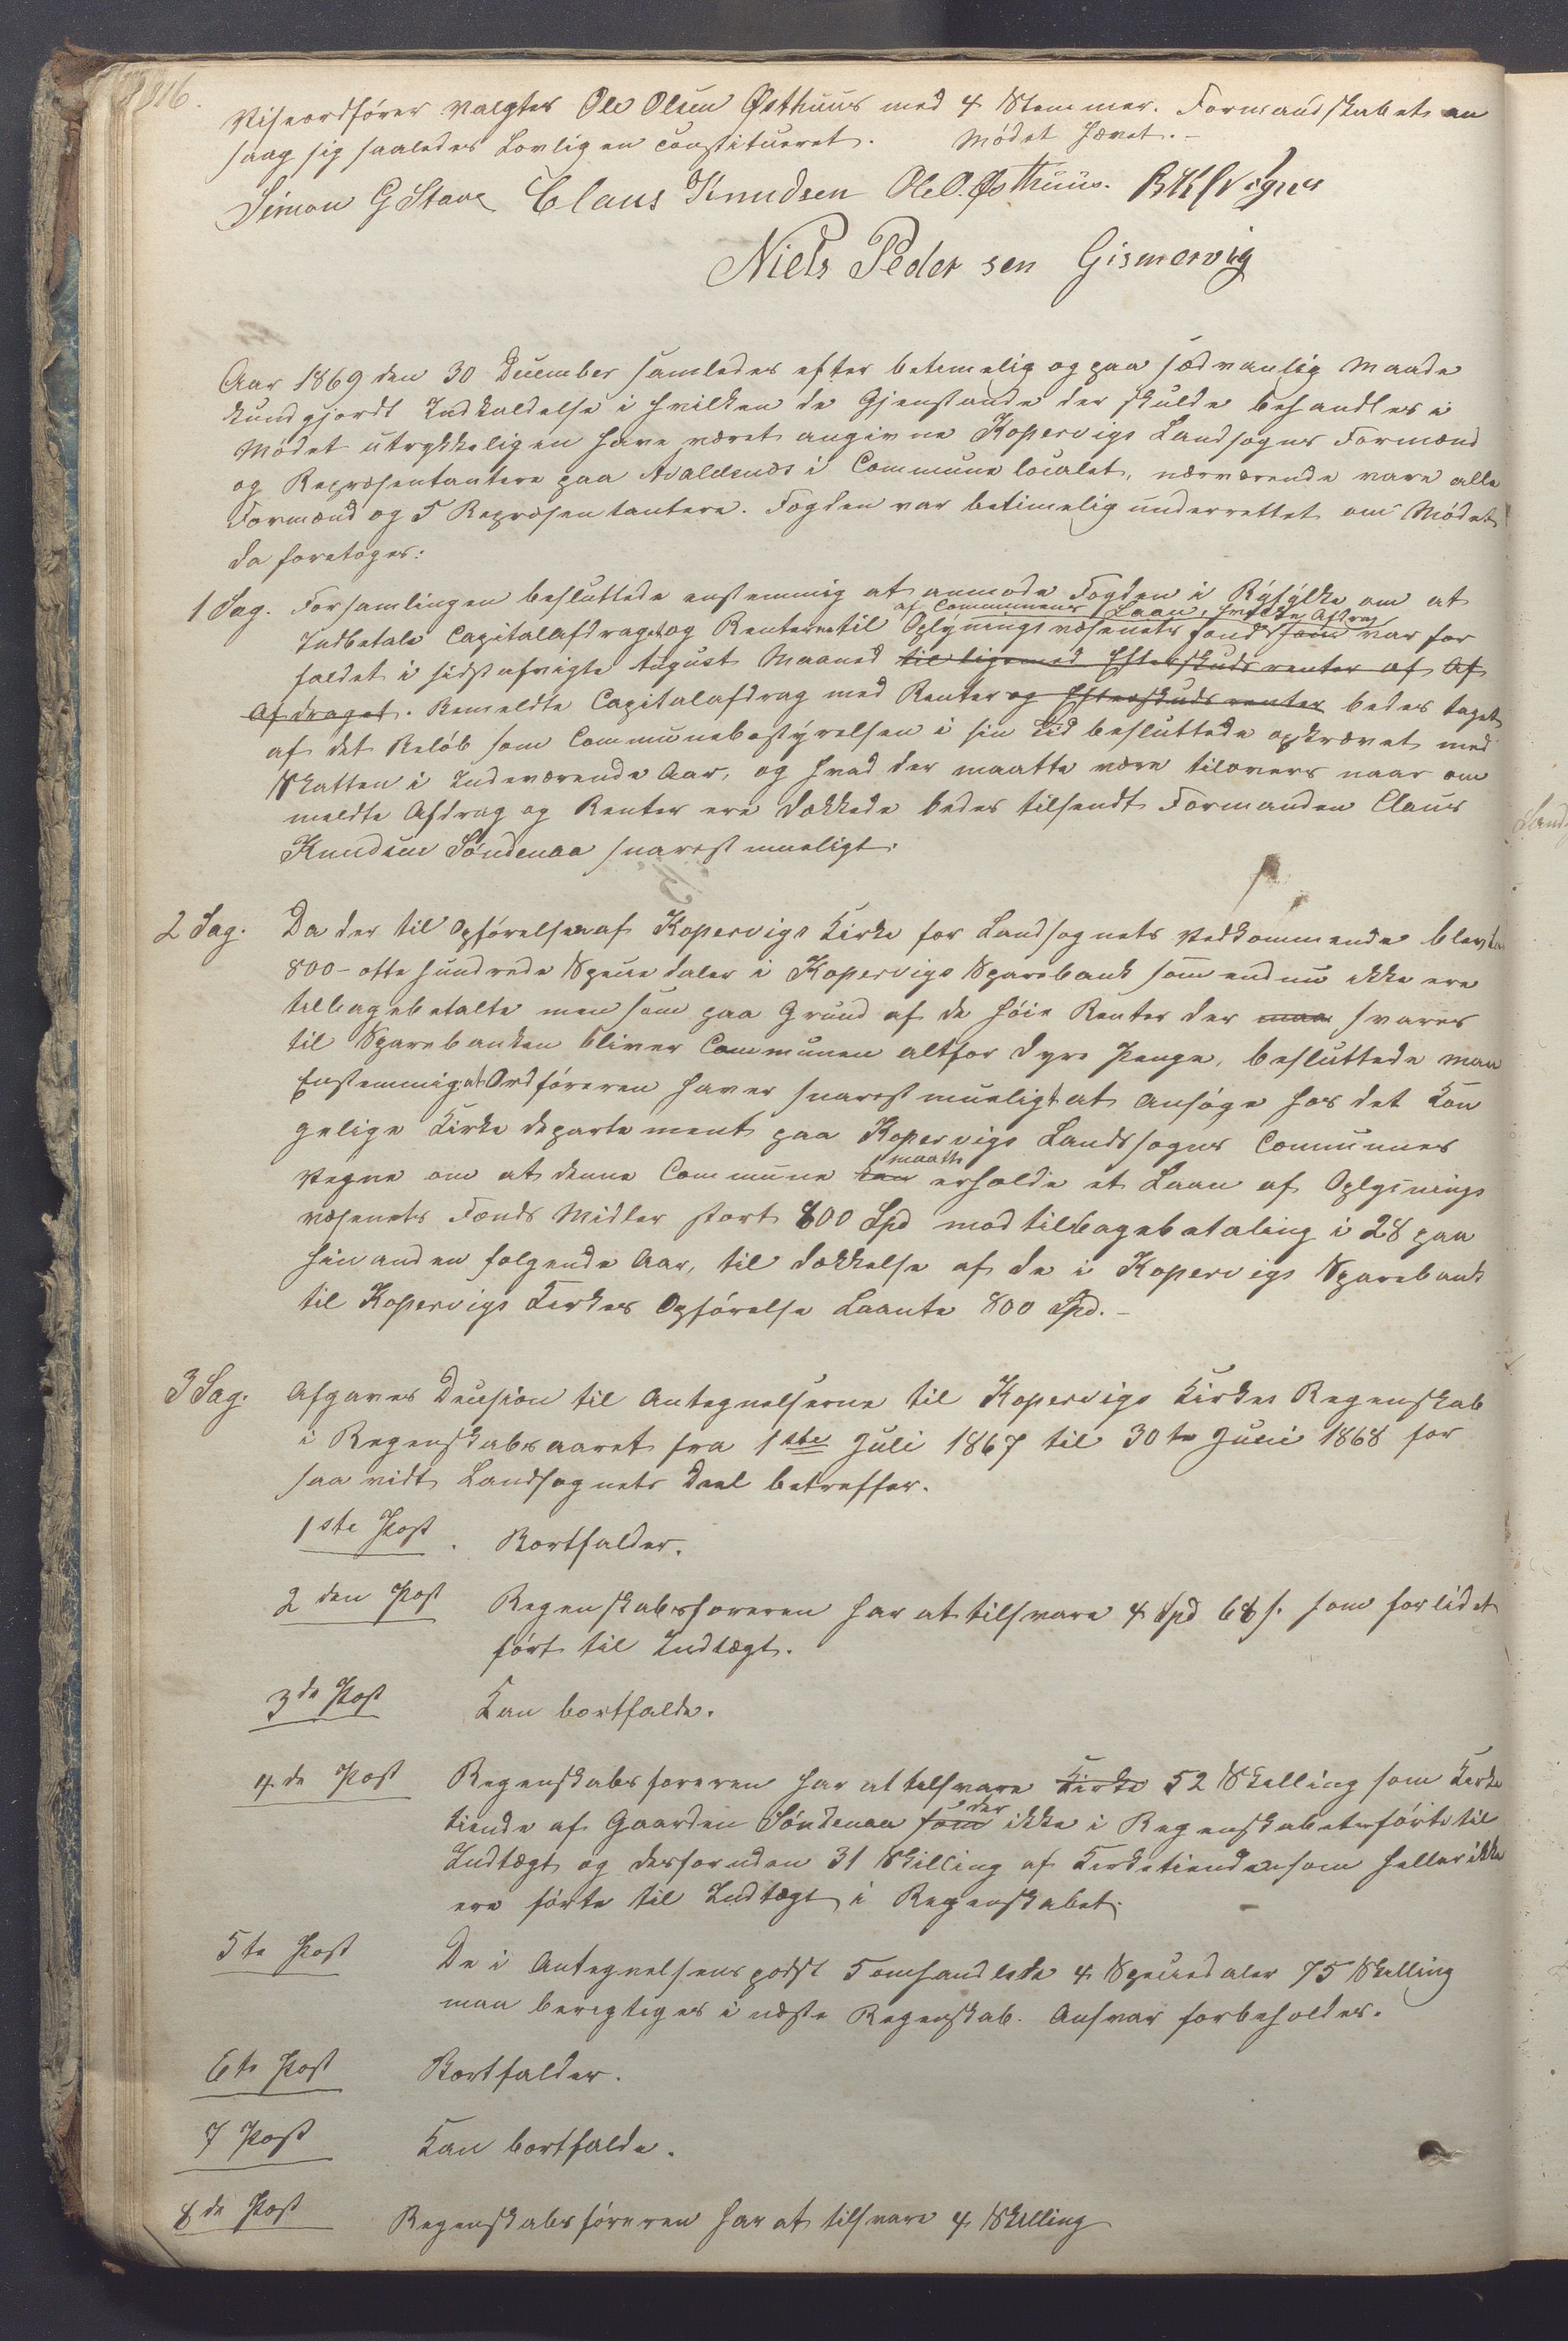 316.
Viseordfører valgtes Ole Olsen Østhuus med 4 Stemmer. Formandskabet an
saag sig saaledes Lovligen constitueret. Mødet hævet.-
Simon G Stave Claus Knudsen Ole O. Østhuus.
Niels Peder sen Gismervig
Aar 1869 den 30 December samledes efter betimelig og paa sædvanlig Maade
kundgjordt Indkaldelse i hvilken de Gjenstande der skulde behandles i
Mødet utrykkeligen have været angivne Kopervigs Landsogns Formænd
og Repræsentantere paa Avaldsnæs i Commune localet, nærværende vare alle
Formænd og 5 Repræsentantere. Fogden var betimelig underrettet om Mødet
da foretoges:
1 Sag. Forsamlingen besluttede enstemmig at anmode Fogden i Ryfylke om at
af Communens Laan, hvilken Afdrag
Indbetale Capitalafdraget og Renterne til Oplysningsvæsenets fond som var for
faldet i sidstafvigte August Maaned til ligemed Efterskuds renter af Af
Afdraget. Bemeldte Capitalafdrag med Renter og Efterskuds renter bedes taget
af det Beløb som Communebestyrelsen i sin Tid besluttede opkrævet med
Skatten i Indeværende Aar, og hvad der maatte være tilovers naar om
meldte Afdrag og Renter ere dækkede bedes tilsendt Formanden Claus
Knudsen Søndenaa snarest mueligt.
2 Sag. Da der til Opførelsen af Kopervigs Kirke for Landsognets Vedkommende blev
800- otte hundrede Speciedaler i Kopervigs Sparebank som endnu ikke ere
tilbagebetalte men som paa Grund af de høie Renter der maa svares
til Sparebanken bliver Communen altfor dyre Penge, besluttede man
Enstemmig at Ordføreren haver snarest mueligt at Ansøge hos det Kon
gelige Kirke departement paa Kopervigs Landssogns Communes
maatte
Vegne om at denne Commune kan erholde et Laan af Oplysnings
væsenets Fonds Midler stort 800 Spd mod tilbagebetaling i 28 paa
hinanden følgende Aar, til dækkelse af de i Kopervigs Sparebank
til Kopervigs Kirkes Opførelse Laante 800 Spd.-
3 Sag. Afgaves Decision til Antegnelserne til Kopervigs Kirkes Regenskab
i Regenskabsaaret fra 1ste Juli 1867 til 30te Juni 1868 for
saa vidt Landsognets Deel betreffer.
1ste Post. Bortfalder.
2den Post Regenskabsføreren har at tilsvare 4 Spd 68 s. som forlidet
ført til Indtægt.
3de Post Kan bortfalde.
4.de Post Regenskabsføreren har at tilsvare Kirke 52 Skilling som Kirke
der
tiende af Gaarden Søndenaa som ikke i Regenskabet er førte til
Indtægt og desforuden 31 Skilling af Kirketienden som heller ikke
ere førte til Indtægt i Regenskabet.
5te Post De i Antegnelsens post 5 omhandlede 4 Speciedaler 75 Skilling
maa berigtiges i næste Regenskab. Ansvar forbeholdes.
6te Post Bortfalder.
7 Post Kan bortfalde.
8de Post Regenskabsføreren har at tilsvare 4 Skilling